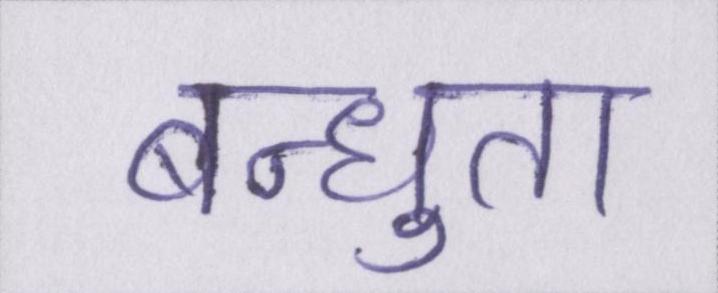 बन्धुता